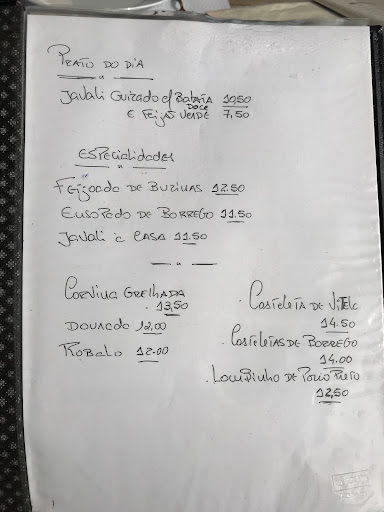 Prato do Dia
Javali Guizado c/ Batata Doce 10,50
e Feijão Verde 7,50
Especialidades
Feijoada de Buzinas 12.50
Ensopado de Borrego 11.50
Javali à Casa 11.50
Corvina Grelhada
. 13,50
Dourado 12,00
Robalo 12.00
. Costeleta de Vitela
14.50
. Costeletas de Borrego
14.00
. Lombinho de Porco Preto
12,50